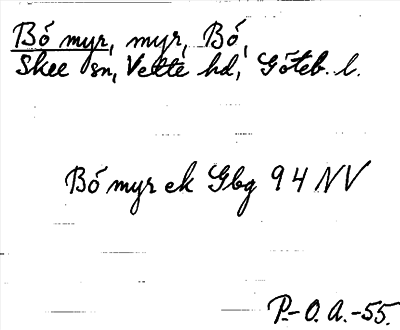 Bö myr, myr, Bö,
Skee sn, Vette hd, Göteb. l.
Bö myr ek Gbg 94 NV
P.-O. A.-55.